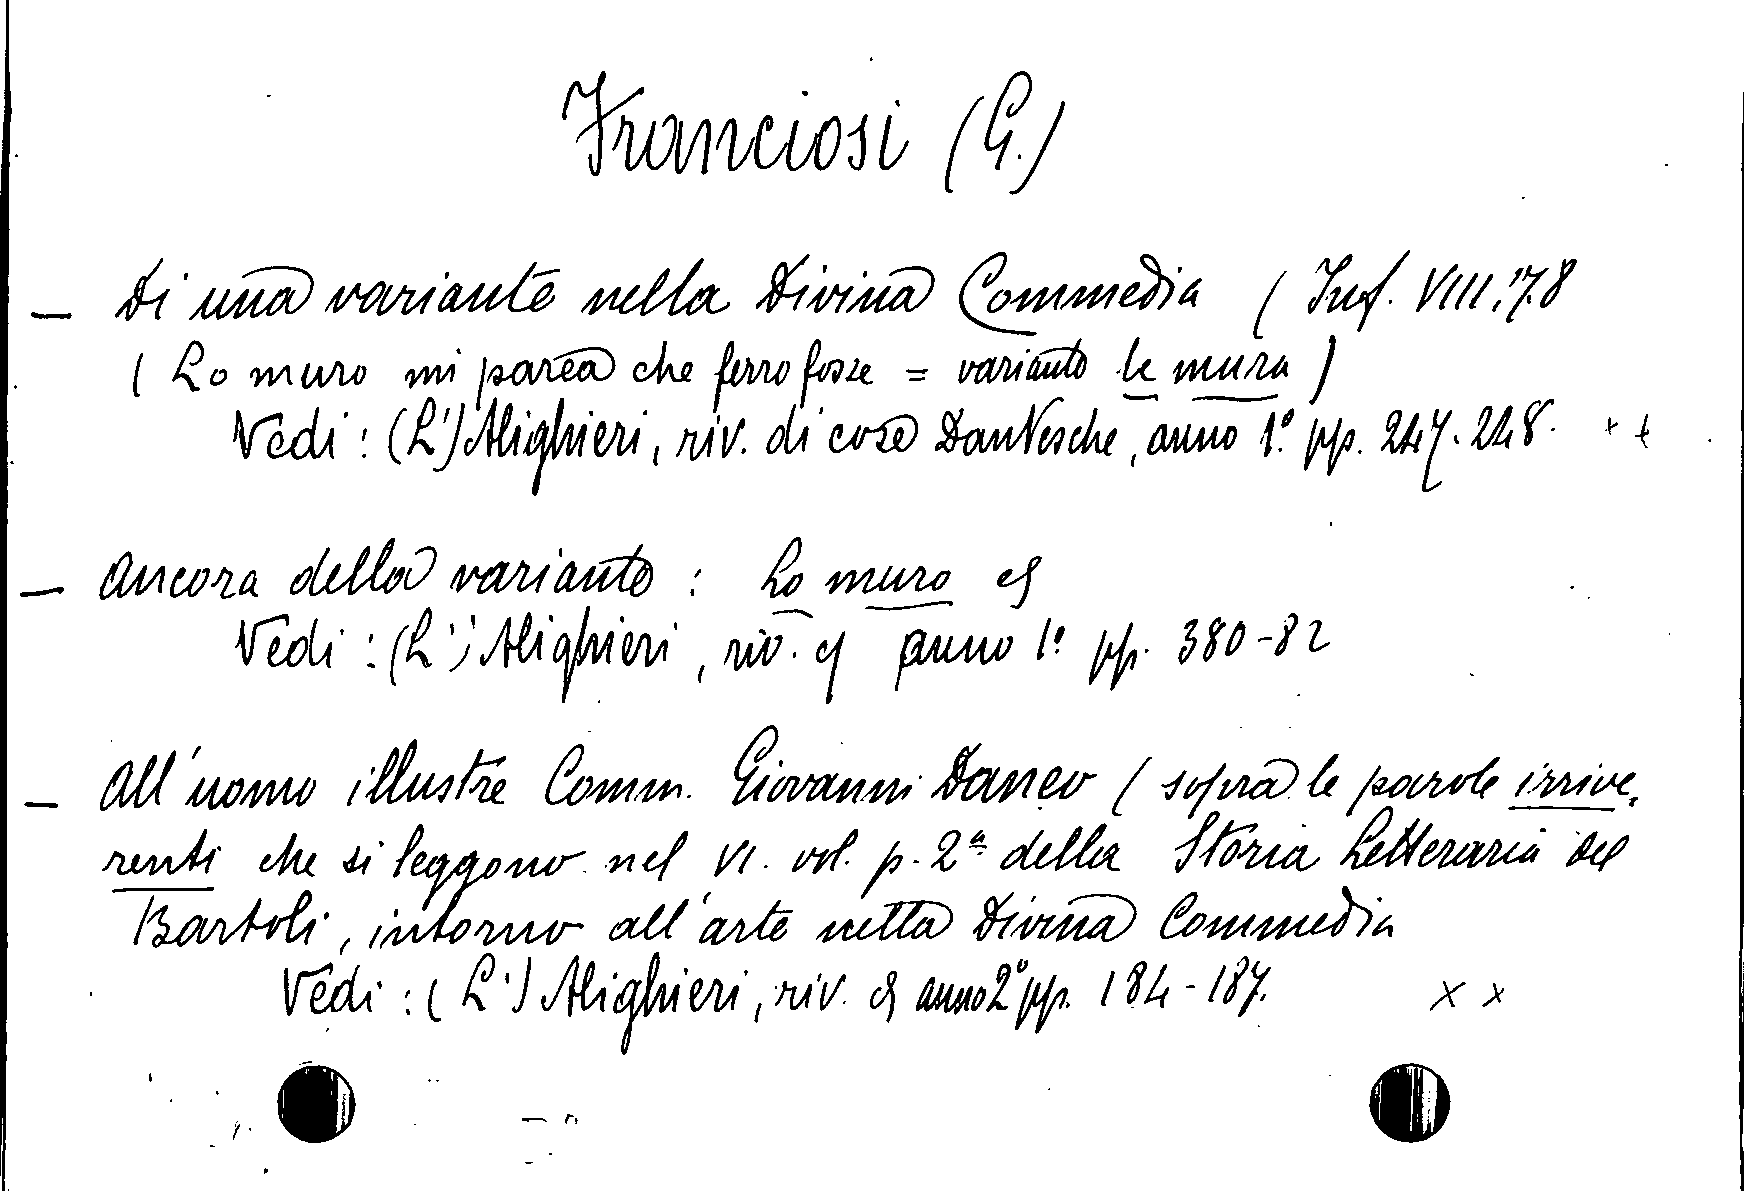 Franciosi (G.)
— Di una variante nella Divina Commedia ( Inf. VIII, 78
( Lo muro mi parea che ferro fosse = variante le mura )
Vedi : (L') Alighieri, riv. di cose Dantesche, anno 1.° pp. 247-248. x x
— Ancora della variante : Lo muro
Vedi : (L') Alighieri, riv. anno 1° pp. 380-82
— All'uomo illustre Comm. Giovanni Daneo ( sopra le parole irrive-
renti che si leggono nel VI. vol. p. 2ª della Storia Letteraria del
Bartoli, intorno all'arte nella Divina Commedia
Vedi : (L') Alighieri, riv. anno 2° pp. 184-187. x x